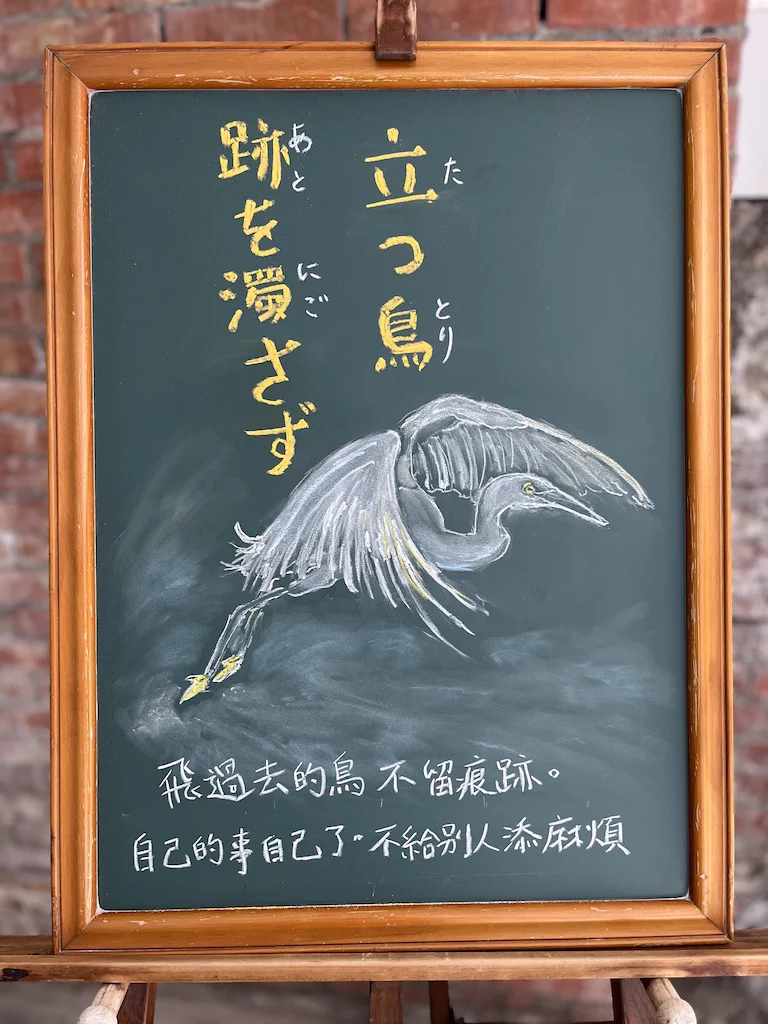 立つ鳥
たとり
跡を濁さず
あとにご
飛過去的鳥 不留痕跡。
自己的事自己了。不給別人添麻煩